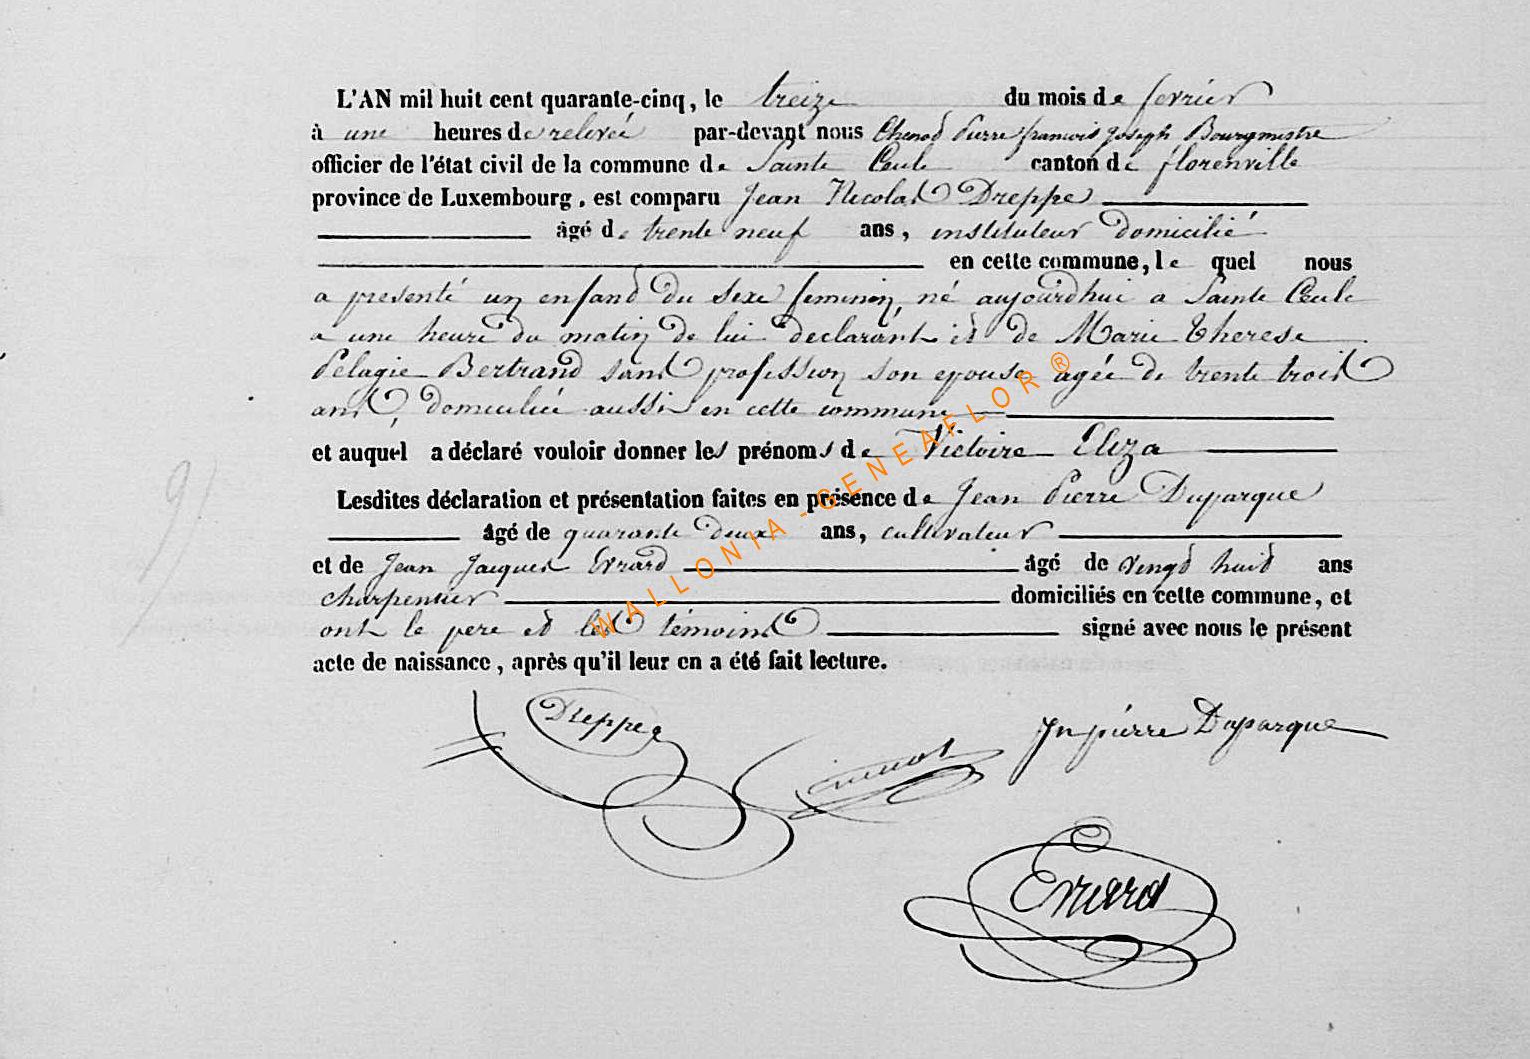 L'AN mil huit cent quarante-cinq, le treize du mois de fevrier
à une heures de relevée par-devant nous Chenot Pierre francois joseph Bourgmestre
officier de l'état civil de la commune de Sainte Cecile canton de florenville
province de Luxembourg, est comparu Jean Nicolas Dreppe
âgé de trente neuf ans, instituteur domicilié
en cette commune, le quel nous
a presenté un enfand du sexe feminin, né aujourdhui a Sainte Cecile
a une heure du matin de lui declarant et de Marie Therese
Pelagie Bertrand sans profession son epouse agée de trente trois
ans, domiciliée aussi en cette commune
et auquel a déclaré vouloir donner les prénoms de Victoire Eliza
Lesdites déclaration et présentation faites en présence de Jean Pierre Duparque
âgé de quarante deux ans, cultivateur
et de Jean Jacques Evrard âgé de vingd huid ans
charpentier domiciliés en cette commune, et
ont le pere et les témoins signé avec nous le présent
acte de naissance, après qu'il leur en a été fait lecture.
Dreppe
Jn pierre Duparque
Evrard
WALLONIA - GENEAFLOR ®